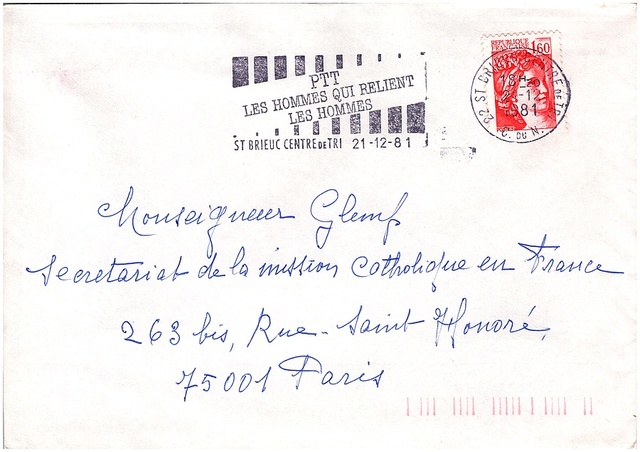 PTT
LES HOMMES QUI RELIENT
LES HOMMES
ST BRIEUC CENTRE DE TRI 21-12-81
1,60
22 ST BRIEUC
18H
21-12
1981
C. DU N.
Monseigneur Glemp
Secretariat de la mission Catholique en France
263 bis, Rue-Saint Honoré,
75001 Paris